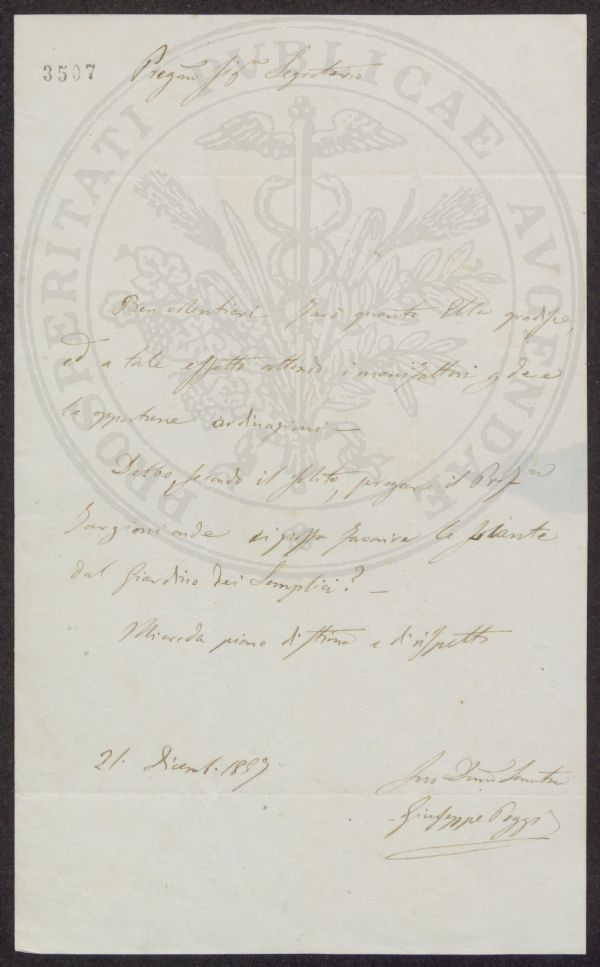 3507
Pregmo Sigr Segretario
PROSPERITATI PUBLICAE AUGENDAE
Ben volentieri farò quanto Ella gradisse,
ed a tale effetto attendo i manifattori p dare
le opportune ordinazioni —
Debbo, secondo il solito, pregare il Profre
Targioni onde si possa favorire le piante
dal Giardino dei Semplici? —
Mi creda pieno di stima e di rispetto
21. Dicemb. 1857
Suo Devmo Servitor
Giuseppe Poggi